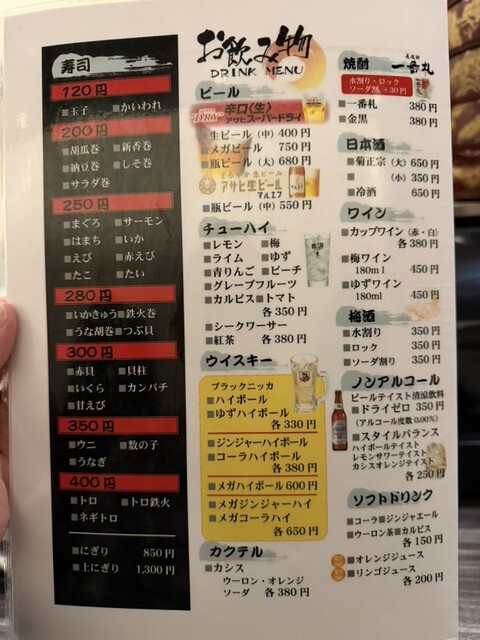 寿司
120円
■玉子 ■かいわれ
200円
■胡瓜巻 ■新香巻
■納豆巻 ■しそ巻
■サラダ巻
250円
■まぐろ ■サーモン
■はまち ■いか
■えび ■赤えび
■たこ ■たい
280円
■いかきゅう ■鉄火巻
■うな胡巻 ■つぶ貝
300円
■赤貝 ■貝柱
■いくら ■カンパチ
■甘えび
350円
■ウニ ■数の子
■うなぎ
400円
■トロ ■トロ鉄火
■ネギトロ
■にぎり 850円
■上にぎり 1,300円
お飲み物
DRINK MENU
ビール
辛口〈生〉
アサヒスーパードライ
■生ビール(中) 400円
■メガビール 750円
■瓶ビール(大) 680円
まろやか生ビール
アサヒ生ビール
マルエフ
■瓶ビール(中) 550円
チューハイ
■レモン ■梅
■ライム ■ゆず
■青りんご ■ピーチ
■グレープフルーツ
■カルピス ■トマト
各350円
■シークワーサー
■紅茶 各380円
ウイスキー
ブラックニッカ
■ハイボール
■ゆずハイボール
各330円
■ジンジャーハイボール
■コーラハイボール
各380円
■メガハイボール 600円
■メガジンジャーハイ
■メガコーラハイ
各650円
カクテル
■カシス
ウーロン・オレンジ
ソーダ 各380円
焼酎 一番札
水割り・ロック
ソーダ割 +30円
■一番札 380円
■金黒 380円
日本酒
■菊正宗(大) 650円
■ (小) 350円
■冷酒 650円
ワイン
■カップワイン(赤・白)
各380円
■梅ワイン
180ml 450円
■ゆずワイン
180ml 450円
梅酒
■水割り 350円
■ロック 350円
■ソーダ割り 350円
ノンアルコール
ビールテイスト清涼飲料
■ドライゼロ 350円
(アルコール度数0.00%)
■スタイルバランス
ハイボールテイスト
レモンサワーテイスト
カシスオレンジテイスト
各250円
ソフトドリンク
■コーラ ■ジンジャエール
■ウーロン茶 ■カルピス
各150円
■オレンジジュース
■リンゴジュース
各200円